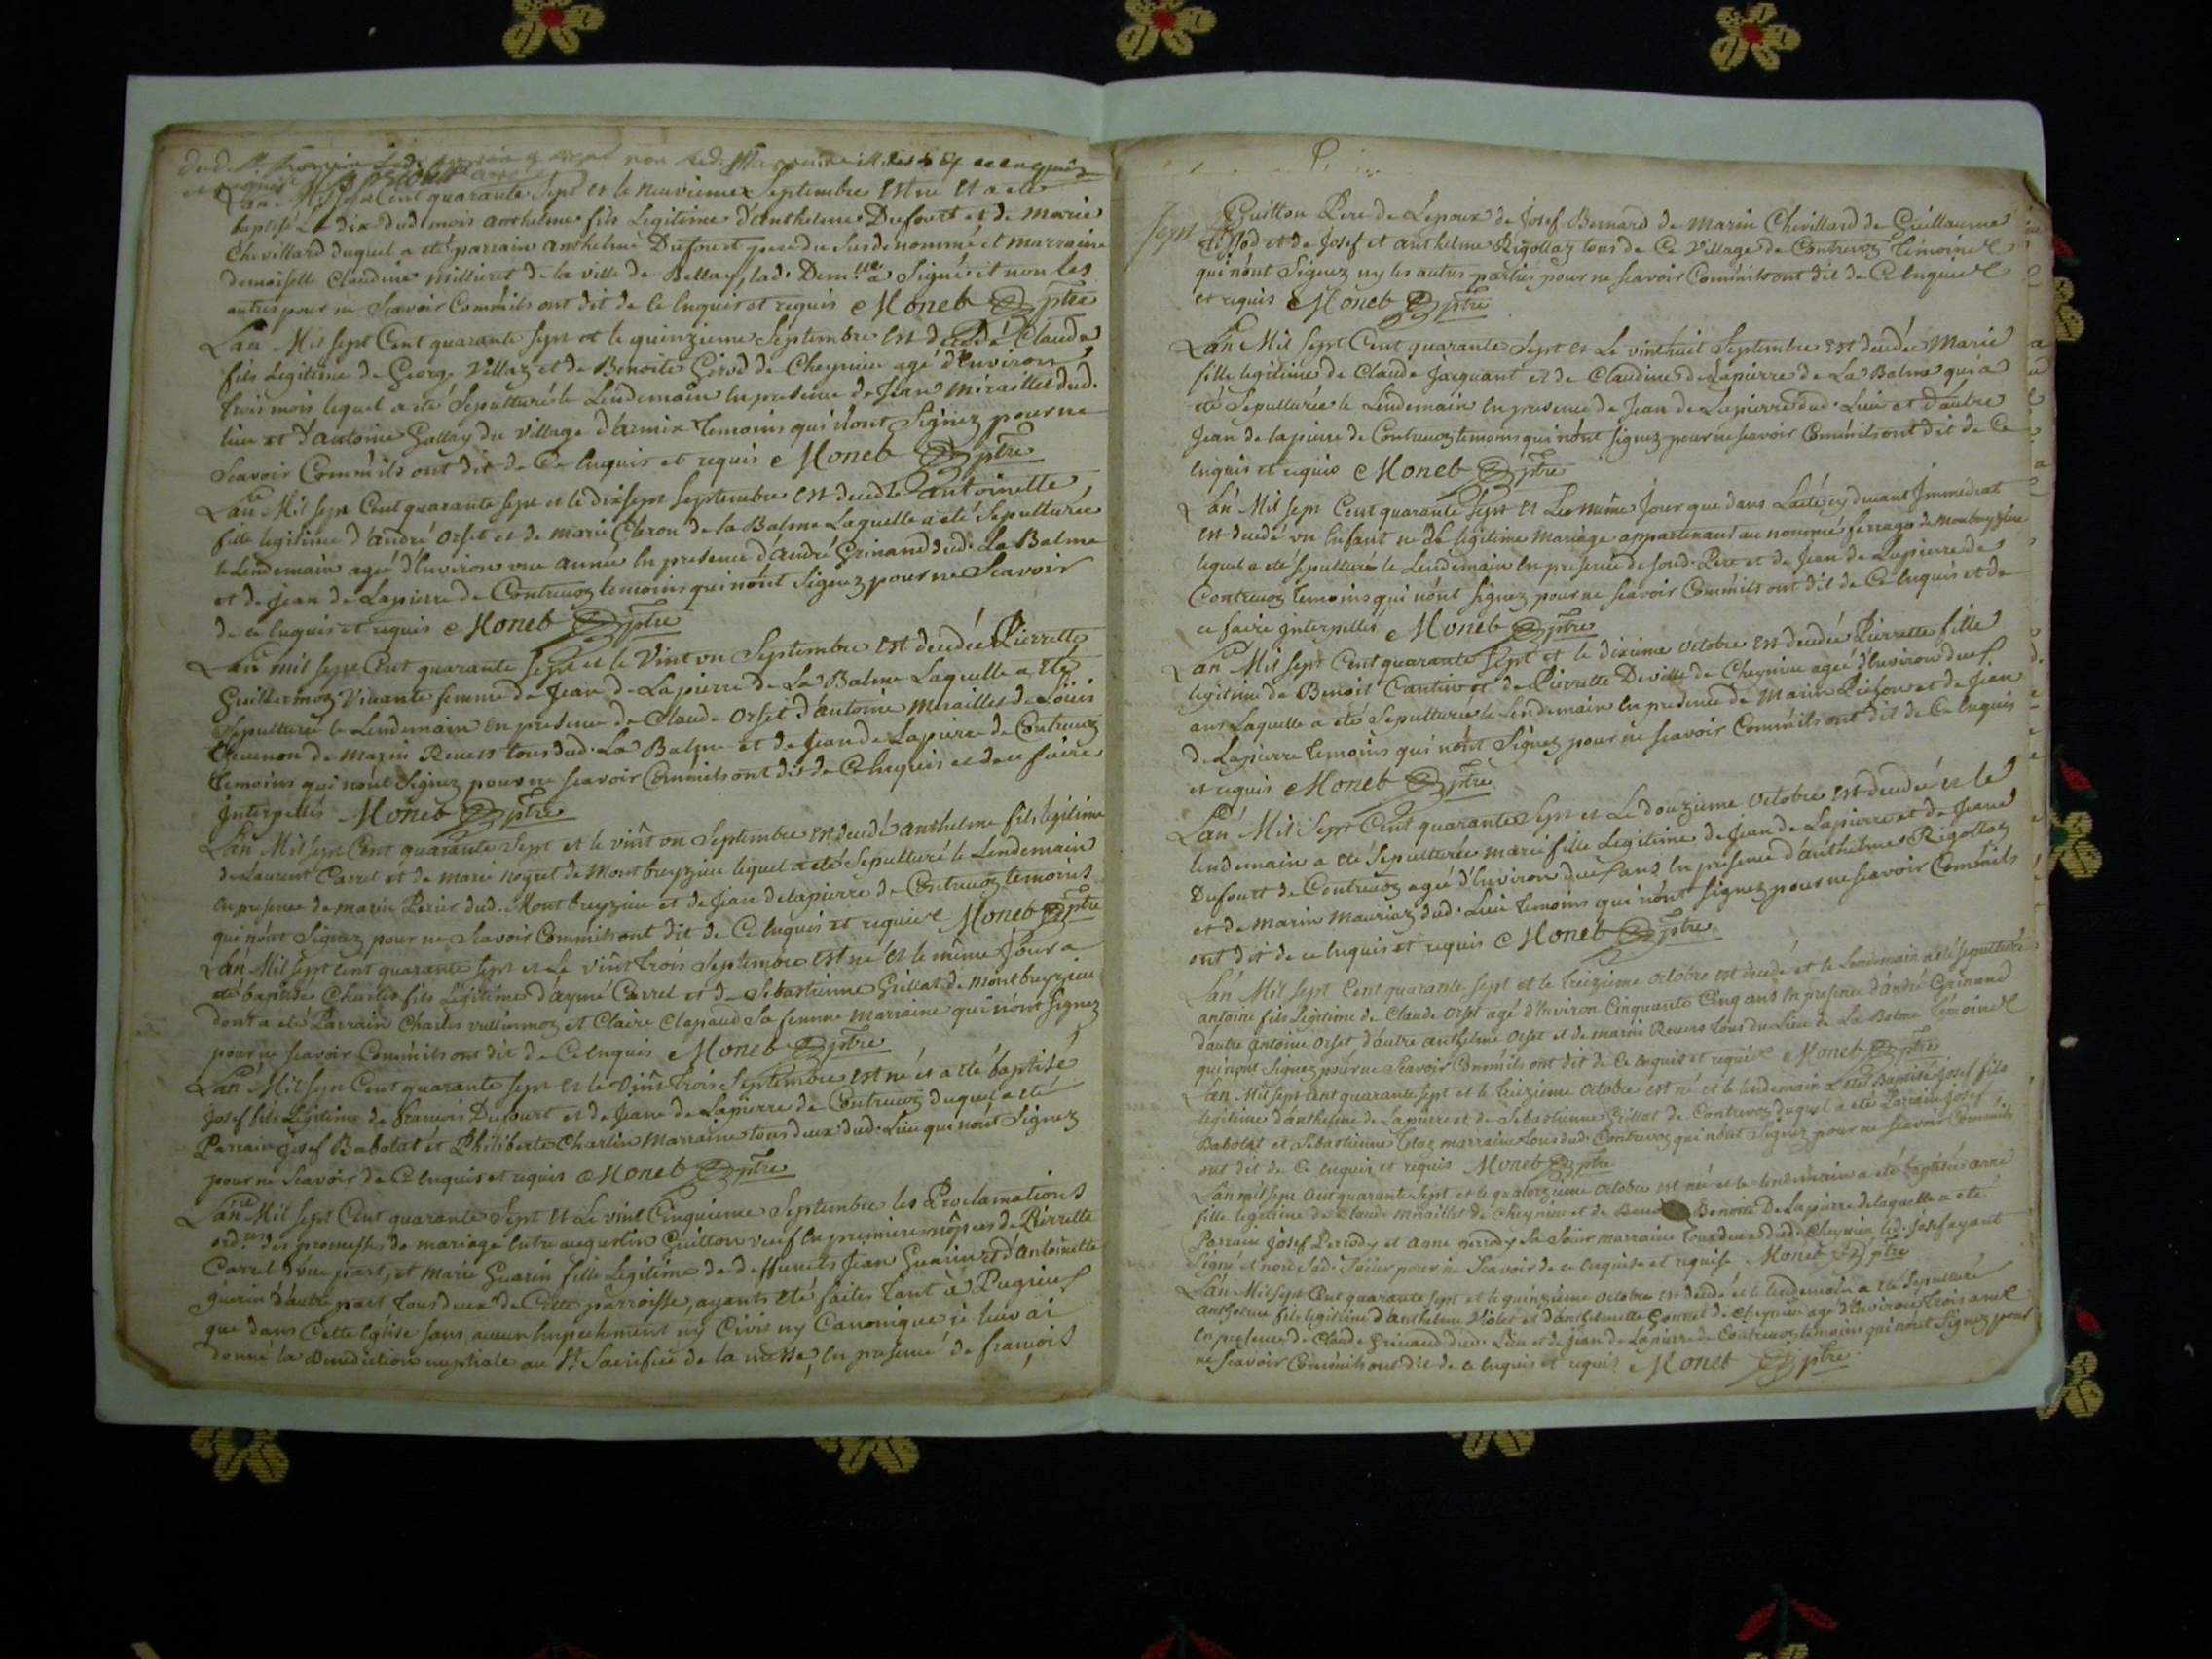 L'an Mil sept Cent quarante Sept et le neuvieme Septembre est né et a eté
baptisé Le dix dud. mois anthelme fils Legitime d'anthelme Dufourt et de Marie
Chevillard duquel a eté parrain anthelme Dufourt pere du Susdenommé et marraine
demoiselle Claudine millieret de la ville de Bellay, lad. Dem.lle a Signé et non les
autres pour ne Scavoir Comm'ils ont dit de Ce Enquis et requis Moneb ptre
L'an Mil sept Cent quarante sept et le quinzieme Septembre est decedé Claude
fils Legitime de George Vollaz et de Benoite Girod de Cheynieu agé d'Environ
trois mois lequel a eté Sepulturé le Lendemain En presence de Jean Miraillet dud.
lieu et d'antoine Gallay du Village d'armix temoins qui n'ont Signez pour ne
Scavoir Comm'ils ont dit de Ce Enquis et requis Moneb ptre
L'an Mil sept Cent quarante sept et le dixsept Septembre est decedée antoinette
fille legitime d'andré orset et de marie Cleron de la Balme Laquelle a eté Sepulturée
le Lendemain ageé d'Environ une année En presence d'andré Grinand dud. La Balme
et de Jean de Lapierre de Contrevoz temoins qui n'ont Signez pour ne Scavoir
de ce Enquis et requis Moneb ptre
L'an mil sept Cent quarante sept et le Vint un Septembre est decedée Pierrette
Guillermoz Vivante femme de Jean de Lapierre de La Balme Laquelle a eté
Sepulturée le Lendemain En presence de Claude orset d'antoine miraillet de Louis
de marin Revers tous dud. La Balme et de Jean de Lapierre de Contrevoz
temoins qui n'ont Signez pour ne scavoir Comm'ils ont dit de Ce Enquis et de ce faire
Interpellés Moneb ptre
L'an Mil sept Cent quarante Sept et le vint un Septembre est decedé anthelme fils legitime
de Laurent Carrel et de marie noyret de Montbreyzieu lequel a eté Sepulturé le Lendemain
En presence de marin Perier dud. Montbreyzieu et de Jean delapierre de Contrevoz temoins
qui n'ont Signez pour ne Scavoir Comm'ils ont dit de Ce Enquis et requis Moneb ptre
L'an Mil sept cent quarante sept et Le vint trois Septembre est né et le même Jour a
eté baptisé Charles fils Legitime d'aymé Carrel et de Sebastienne Grillat de montbreyzieu
dont a eté Parrain Charles vulliermoz et Claire Clapaud Sa femme marraine qui n'ont Signez
pour ne scavoir Comm'ils ont dit de Ce Enquis Moneb ptre
L'an Mil sept Cent quarante sept et le Vint trois Septembre est né et a eté baptisé
Josef fils Legitime de francois Dufourt et de Jeane de Lapierre de Contrevoz duquel a eté
Parrain Josef Babolat et Philiberte Charlin Marraine tous deux dud. Lieu qui n'ont Signez
pour ne Scavoir de Ce Enquis et requis Moneb ptre
L'an Mil sept Cent quarante Sept et Le vint Cinquieme Septembre les Proclamations
ord.res des promesses de mariage Entre augustin Guitton veuf En premieres nôpces de Pierrette
Carrel d'une part, et marie Guarin fille Legitime de deffuncts Jean Guarin et d'antoinette
guerin d'autre part tous deux de Cette parroisse, ayants eté faites tant à Pugieu
que dans Cette Eglise sans aucun Empechement ny Civis ny Canonique je leur ai
donné la Benediction nuptiale au St Sacrifice de la messe, En presence de francois
Guitton Pere de L'epoux de Josef Bernard de marin Chevillard de Guillaume
Tissod et de Josef et anthelme Rigollaz tous de Ce Village de Contrevoz temoins
qui n'ont Signez ny les autres parties pour ne scavoir Comm'ils ont dit de Ce Enquis
et requis Moneb ptre
L'an Mil sept Cent quarante Sept et Le vinthuit Septembre est decedée Marie
fille legitime de Claude Jacquant et de Claudine de Lapierre de La Balme qui a
eté Sepulturée le Lendemain En presence de Jean de Lapierre dud. Lieu et d'autre
Jean de lapierre de Contrevoz temoins qui n'ont signez pour ne scavoir Comm'ils ont dit de Ce
Enquis et requis Moneb ptre
L'an Mil sept Cent quarante Sept et Le même Jour que dans L'acte cy devant Immediat
est decedé un Enfant né de legitime mariage appartenant au nommé ferrage de montbreyzieu
lequel a eté sepulturé le Lendemain En presence de sond. Pere et de Jean de Lapierre de
Contrevoz temoins qui n'ont signez pour ne scavoir Comm'ils ont dit de Ce Enquis et de
ce faire interpellés Moneb ptre
L'an Mil sept Cent quarante Sept et le dixieme octobre est decedée Pierrette fille
legitime de Benoit Cantin et de Pierrette Deville de Cheynieu ageé d'Environ deux
ans Laquelle a eté Sepulturée le Lendemain En presence de Marin et de Jean
de Lapierre temoins qui n'ont Signez pour ne scavoir Comm'ils ont dit de Ce Enquis
et requis Moneb ptre
L'an Mil Sept Cent quarante Sept et Le douzieme octobre est decedée et le
lendemain a eté Sepulturée marie fille Legitime de Jean de Lapierre et de Jeane
Dufourt de Contrevoz ageé d'Environ deux ans En presence d'anthelme Rigollaz
et de marin mauriaz dud. Lieu temoins qui n'ont signez pour ne scavoir Comm'ils
ont dit de ce Enquis et requis Moneb ptre
L'an Mil sept Cent quarante sept et le treizieme octobre est decedé et le Lendemain a eté sepulturé
antoine fils Legitime de Claude orset agé d'Environ Cinquante Cinq ans En presence d'andré Grinand
d'autre antoine orset d'autre anthelme orset et de marin Revers tous du Lieu de La Balme temoins
qui n'ont Signez pour ne Scavoir Comm'ils ont dit de Ce Enquis et requis Moneb ptre
L'an Mil sept Cent quarante sept et le treizieme octobre est né et le lendemain a eté Baptisé Josef fils
legitime d'anthelme de Lapierre et de Sebastienne Grillat de Contrevoz duquel a eté Parrain Josef
Babolat et Sebastienne marraine tous dud. Contrevoz qui n'ont Signez pour ne scavoir Comm'ils
ont dit de Ce Enquis et requis Moneb ptre
L'an mil sept Cent quarante sept et le quatorzieme octobre est née et le lendemain a eté baptisée anne
fille legitime de Claude miraillet de Cheynieu et de Benoite De Lapierre de laquelle a eté
Parrain Josef Perrody et anne perrody Sa Soeur marraine tous deux dud. Cheynieu led. Josef ayant
Signé et non Sad. Soeur pour ne Scavoir de ce Enquise et requise Moneb ptre
L'an Mil sept Cent quarante sept et le quinzieme octobre est decedé et le lendemain a eté Sepulturé
anthelme fils legitime d'anthelme Violet et d'anthelmette Gonnet de Cheynieu agé d'Environ trois ans
En presence de Claude Grinand dud. Lieu et de Jean de Lapierre de Contrevoz temoins qui n'ont Signez pour
ne scavoir Comm'ils ont dit de ce Enquis et requis Moneb ptre